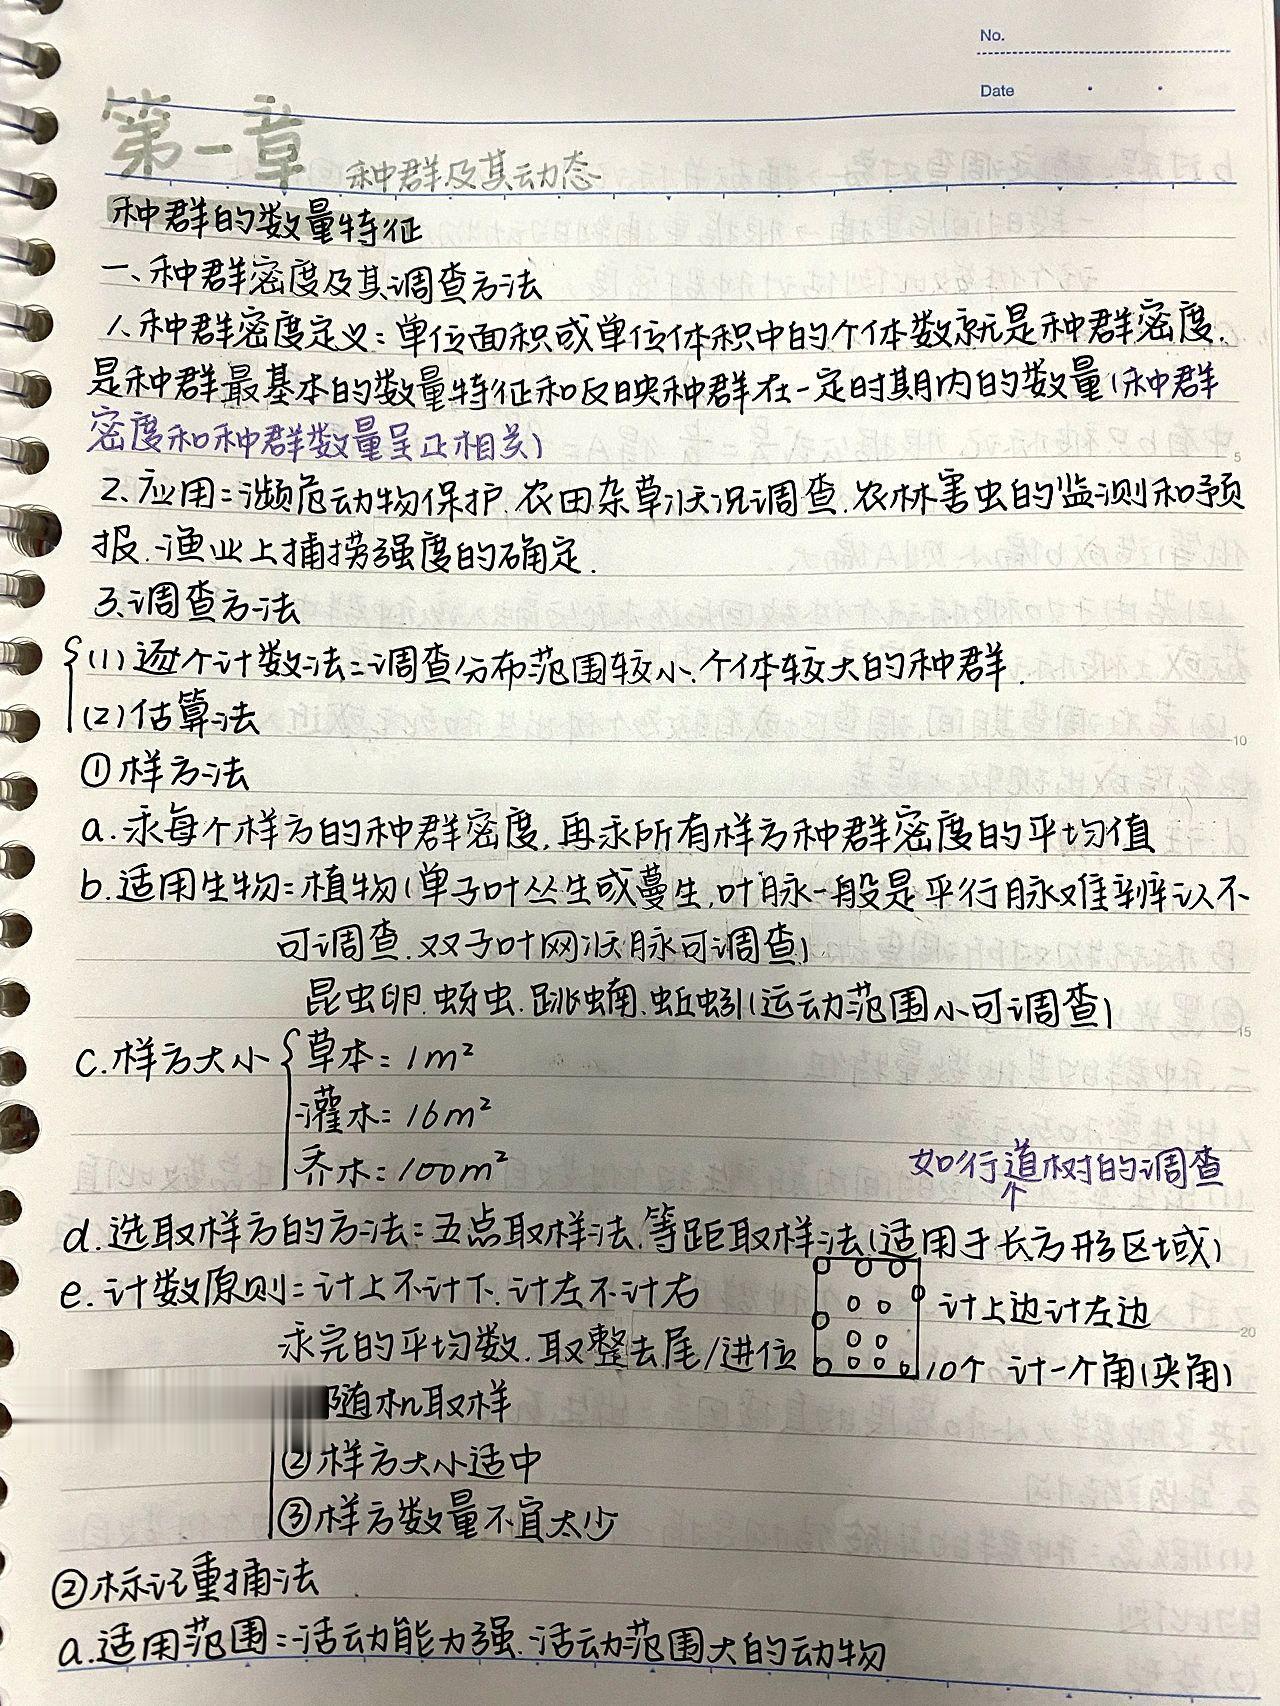 No.
Date
第一章 种群及其动态
种群的数量特征
一、种群密度及其调查方法
1.种群密度定义:单位面积或单位体积中的个体数就是种群密度.
是种群最基本的数量特征和反映种群在一定时期内的数量(种群
密度和种群数量呈正相关)
2.应用:濒危动物保护.农田杂草状况调查.农林害虫的监测和预
报.渔业上捕捞强度的确定.
5
3.调查方法
(1)逐个计数法:调查分布范围较小.个体较大的种群.
(2)估算法
10
①样方法
a.求每个样方的种群密度,再求所有样方种群密度的平均值
b.适用生物:植物(单子叶丛生或蔓生,叶脉一般是平行脉难辨认不
可调查.双子叶网状脉可调查)
昆虫卵.蚜虫.跳蝻.蚯蚓(运动范围小可调查)
15
c.样方大小 草本:1m²
灌木:16m²
乔木:100m²
如行道树的调查
d.选取样方的方法:五点取样法.等距取样法(适用于长方形区域)
e.计数原则:计上不计下.计左不计右
计上边计左边
20
求完的平均数.取整去尾/进位
10个 计一个角(夹角)
随机取样
②样方大小适中
③样方数量不宜太少
②标记重捕法
a.适用范围:活动能力强.活动范围大的动物